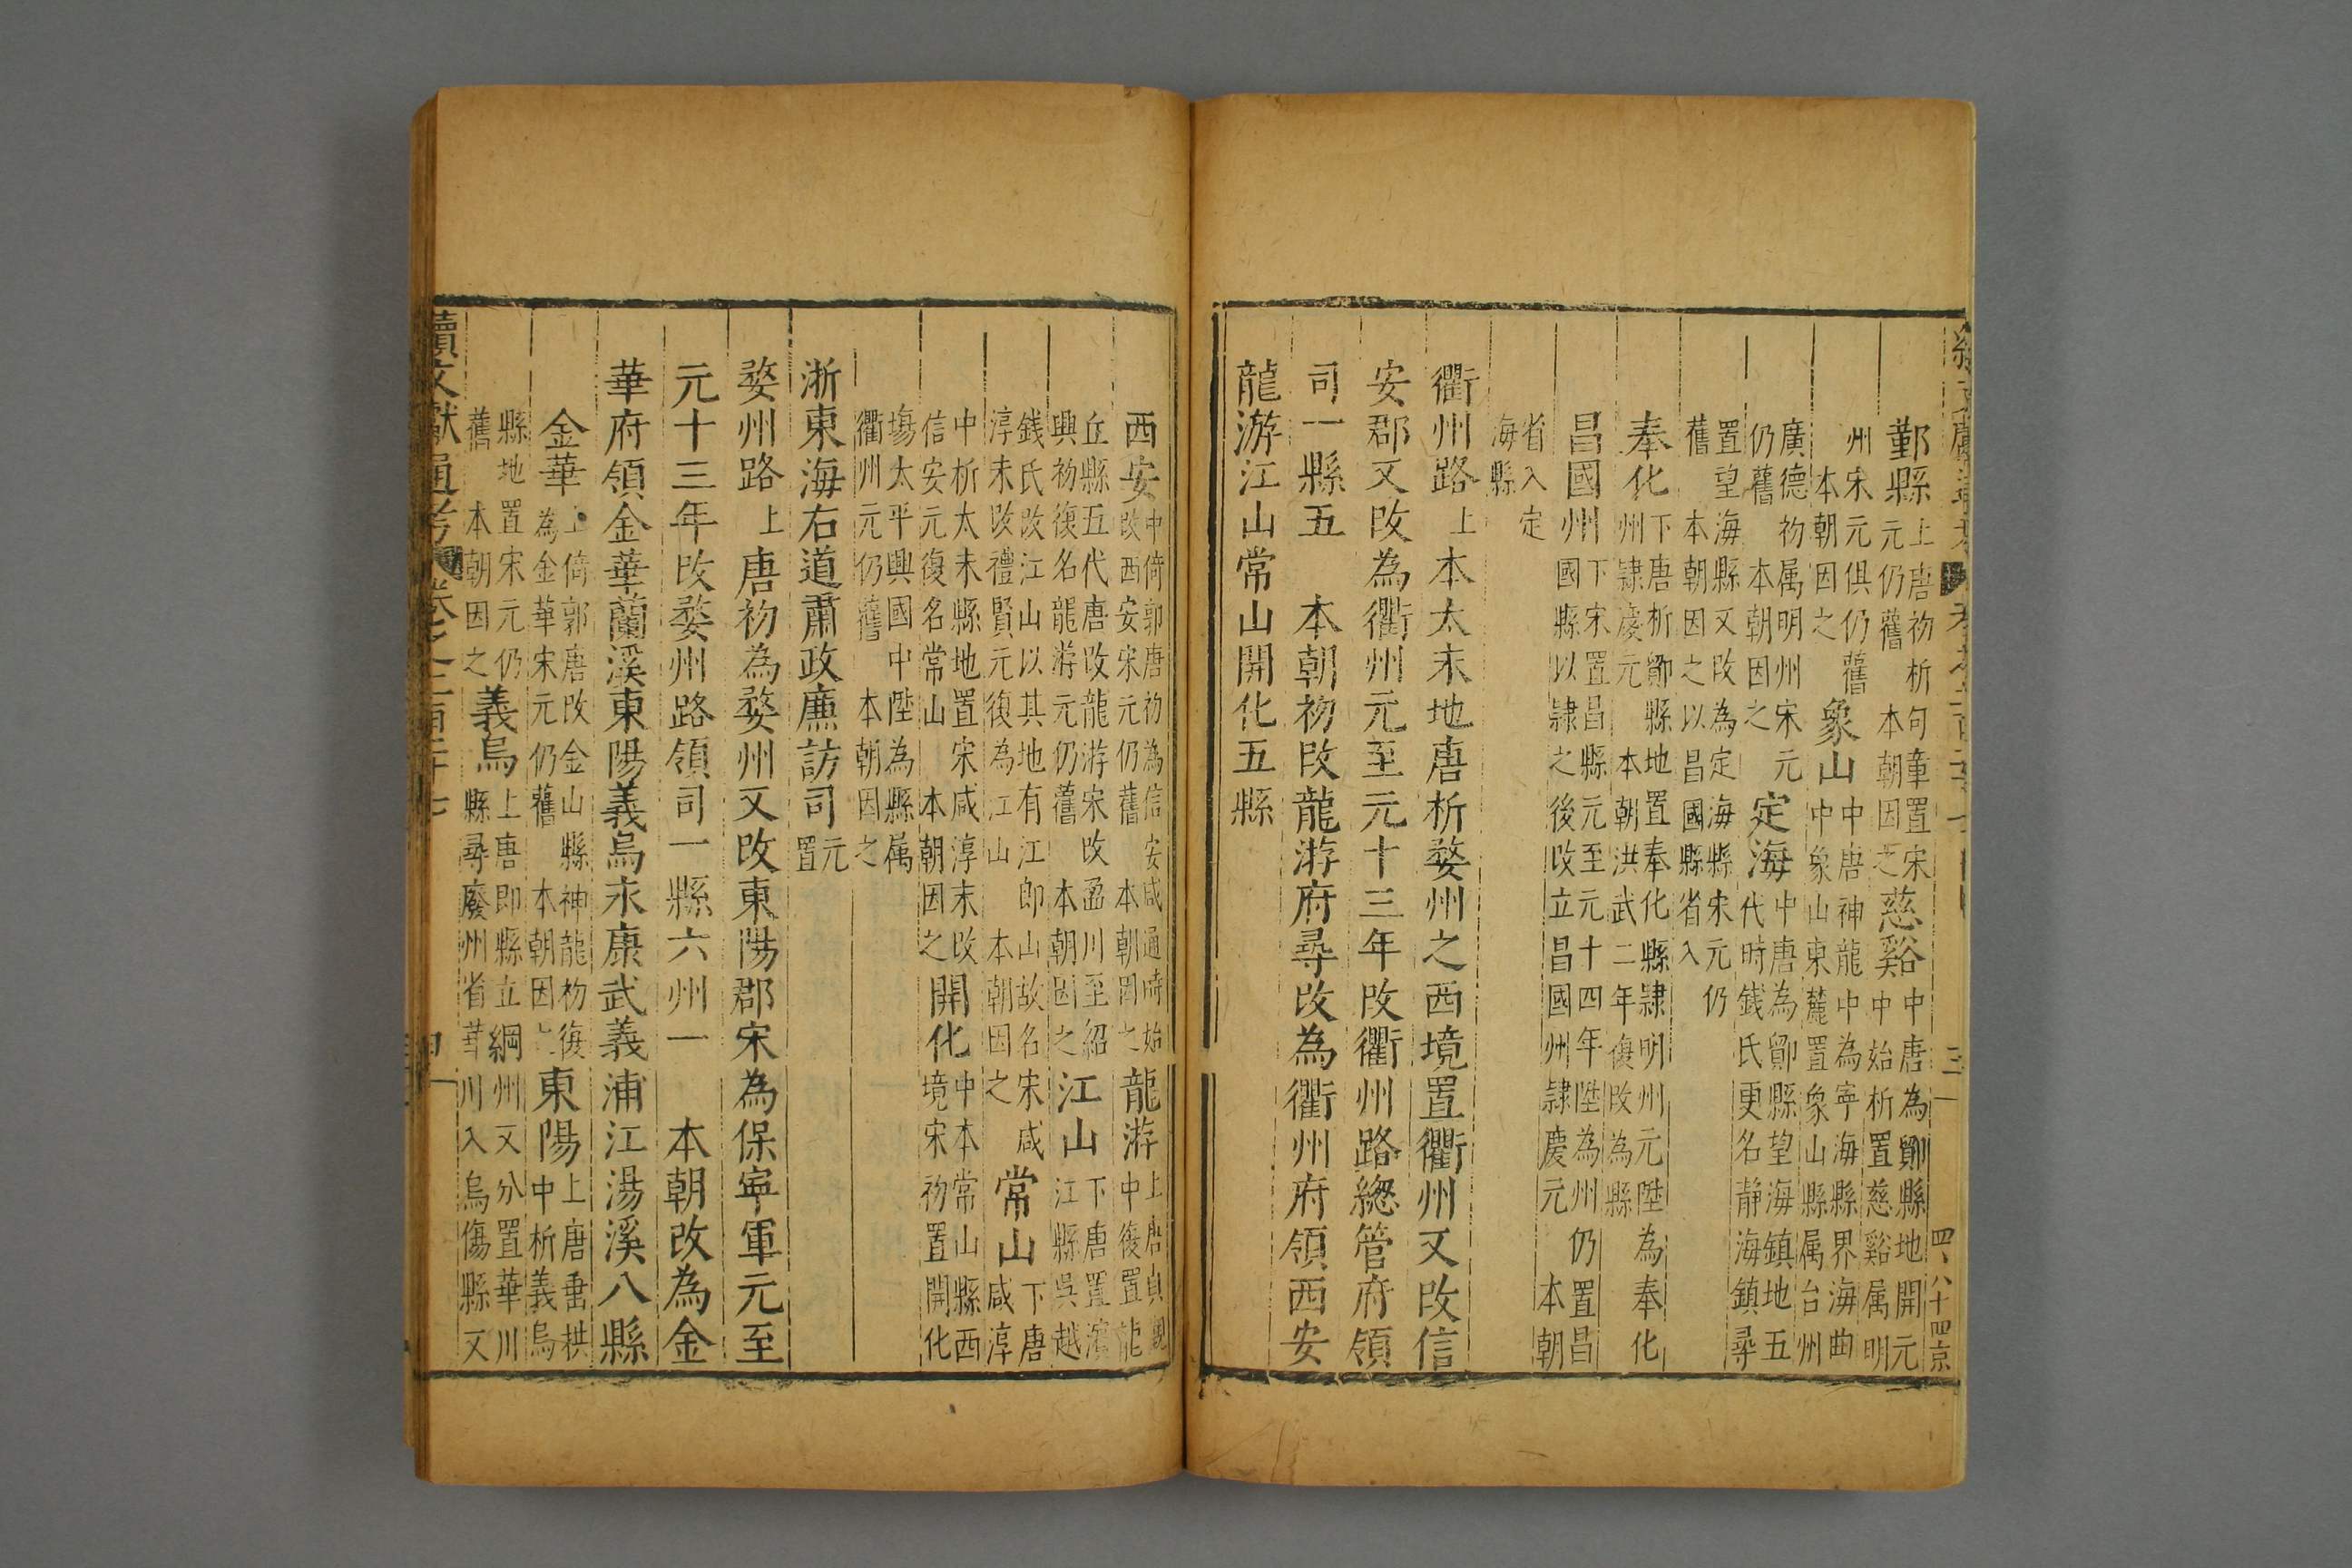 鄞縣上唐初析句章置宋元仍舊 本朝因之慈谿中唐為鄮縣地開元中始析置慈谿属明
州宋元俱仍舊本朝因之象山中唐神龍中為寧海縣界海曲中象山東麓置象山縣属台州
廣德初属明州宋元仍舊 本朝因之定海中唐為鄮縣望海鎮地五代時錢氏更名静海鎮尋
置望海縣又改為定海縣宋元仍舊 本朝因之以昌國縣省入
奉化下唐析鄮縣地置奉化縣隷明州元陞為奉化州隷慶元 本朝洪武二年復改為縣
昌國州下宋置昌縣元至元十四年陞為州仍置昌國縣以隷之後改立昌國州隷慶元 本朝
省入定海縣
衢州路上本太末地唐析婺州之西境置衢州又改信
安郡又改為衢州元至元十三年改衢州路緫管府領
司一縣五 本朝初改龍游府尋改為衢州府領西安
龍游江山常山開化五縣
西安中倚郭唐初為信安咸通時始改西安宋元仍舊 本朝因之龍游上唐貞觀中復置龍
丘縣五代唐改龍游宋改盈川至紹興初復名龍游元仍舊 本朝因之江山下唐置湏江縣吳越
錢氏改江山以其地有江郎山故名宋咸淳末改禮賢元復為江山 本朝因之常山下唐咸淳
中析太末縣地置宋咸淳末改信安元復名常山 本朝因之開化中本常山縣西境宋初置開化
塲太平興國中陞為縣属衢州元仍舊 本朝因之
浙東海右道肅政廉訪司元置
婺州路上唐初為婺州又改東陽郡宋為保寧軍元至
元十三年改婺州路領司一縣六州一 本朝改為金
華府領金華蘭溪東陽義烏永康武義浦江湯溪八縣
金華上倚郭唐改金山縣神龍初復為金華宋元仍舊 本朝因之東陽上唐垂拱中析義烏
縣地置宋元仍舊 本朝因之義烏上唐即縣立綱州又分置華川縣尋廢州省華川入烏傷縣又
續文獻通考 卷之二百二十七